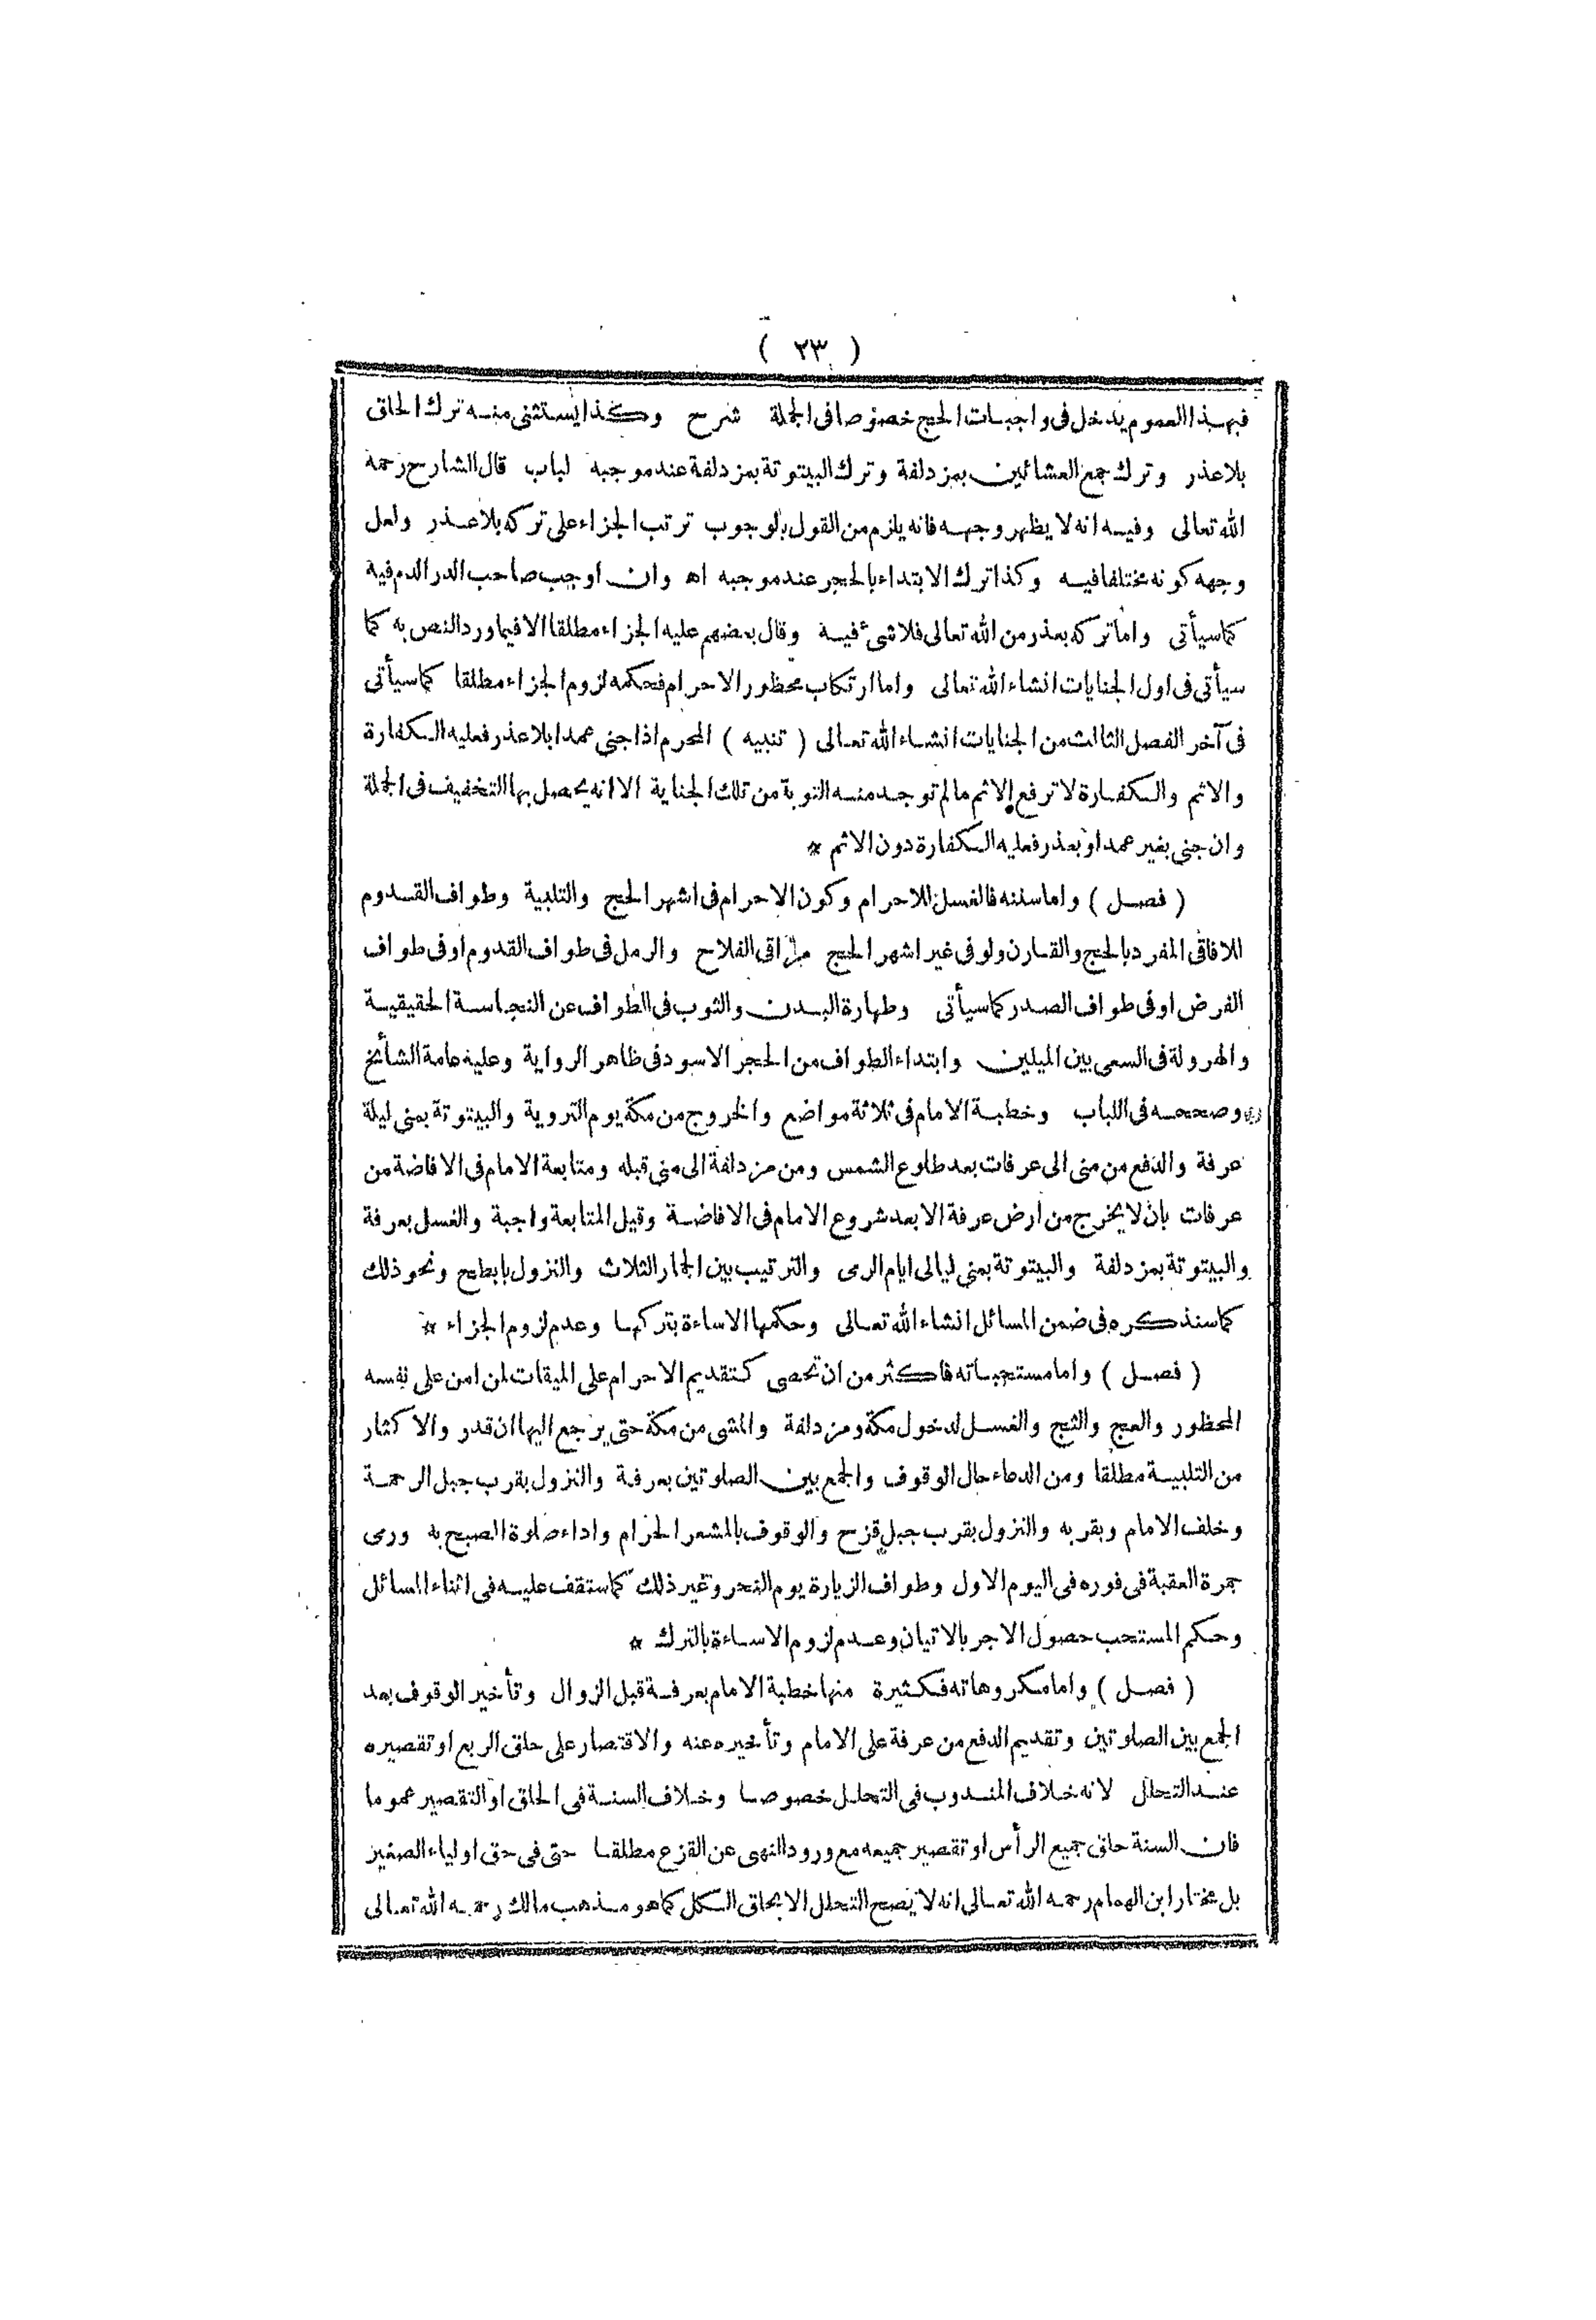 ( ٢٣ )
فبهذا العموم يدخل فى واجبات الحج خصوصا فى الجملة شرح وكذا يستثنى منه ترك الحلق
بلا عذر وترك جمع العشائين بمزدلفة وترك البيتوتة بمزدلفة عند موجبه لباب قال الشارح رحمه
الله تعالى وفيه انه لا يظهر وجهه فانه يلزم من القول بالوجوب ترتب الجزاء على تركه بلا عذر ولعل
وجهه كونه مختلفا فيه وكذا ترك الابتداء بالحجر عند موجبه اه وان اوجب صاحب الدر الدم فيه
كما سيأتى واما تركه بعذر من الله تعالى فلا شئ فيه وقال بعضهم عليه الجزاء مطلقا الا فيما ورد النص به كما
سيأتى فى اول الجنايات انشاء الله تعالى واما ارتكاب محظور الاحرام فحكمه لزوم الجزاء مطلقا كما سيأتى
فى آخر الفصل الثالث من الجنايات انشاء الله تعالى ( تنبيه ) المحرم اذا جنى عمدا بلا عذر فعليه الكفارة
والاثم والكفارة لا ترفع الاثم مالم توجد منه التوبة من تلك الجناية الا انه يحصل بها التخفيف فى الجملة
وان جنى بغير عمد او بعذر فعليه الكفارة دون الاثم *
( فصل ) واما سننه فالغسل للاحرام وكون الاحرام فى اشهر الحج والتلبية وطواف القدوم
للافاقى المفرد بالحج والقارن ولو فى غير اشهر الحج مراقى الفلاح والرمل فى طواف القدوم او فى طواف
الفرض او فى طواف الصدر كما سيأتى وطهارة البدن والثوب فى الطواف عن النجاسة الحقيقية
والهرولة فى السعى بين الميلين وابتداء الطواف من الحجر الاسود فى ظاهر الرواية وعليه عامة المشائخ
وصححه فى اللباب وخطبة الامام فى ثلاثة مواضع والخروج من مكة يوم التروية والبيتوتة بمنى ليلة
عرفة والدفع من منى الى عرفات بعد طلوع الشمس ومن مزدلفة الى منى قبله ومتابعة الامام فى الافاضة من
عرفات بان لا يخرج من ارض عرفة الا بعد شروع الامام فى الافاضة وقيل المتابعة واجبة والغسل بعرفة
والبيتوتة بمزدلفة والبيتوتة بمنى ليالى ايام الرمى والترتيب بين الجمار الثلاث والنزول بابطح ونحو ذلك
كما سنذكره فى ضمن المسائل انشاء الله تعالى وحكمها الاساءة بتركها وعدم لزوم الجزاء *
( فصل ) واما مستحباته فاكثر من ان تحصى كتقديم الاحرام على الميقات لمن امن على نفسه
المحظور والعج والثج والغسل لدخول مكة ومزدلفة والمشى من مكة حتى يرجع اليها ان قدر والاكثار
من التلبية مطلقا ومن الدعاء حال الوقوف والجمع بين الصلوتين بعرفة والنزول بقرب جبل الرحمة
وخلف الامام وبقربه والنزول بقرب جبل قزح والوقوف بالمشعر الحرام واداء صلوة الصبح به ورمى
جمرة العقبة فى فوره فى اليوم الاول وطواف الزيارة يوم النحر وغير ذلك كما ستقف عليه فى اثناء المسائل
وحكم المستحب حصول الاجر بالاتيان وعدم لزوم الاساءة بالترك *
( فصل ) واما مكروهاته فكثيرة منها خطبة الامام بعرفة قبل الزوال وتأخير الوقوف بعد
الجمع بين الصلوتين وتقديم الدفع من عرفة على الامام وتأخيره عنه والاقتصار على حلق الربع او تقصيره
عند التحلل لانه خلاف المندوب فى التحلل خصوصا وخلاف السنة فى الحلق او التقصير عموما
فان السنة حلق جميع الرأس او تقصير جميعه مع ورود النهى عن القزع مطلقا حتى فى حق اولياء الصغير
بل مختار ابن الهمام رحمه الله تعالى انه لا يصح التحلل الا بحلق الكل كما هو مذهب مالك رحمه الله تعالى